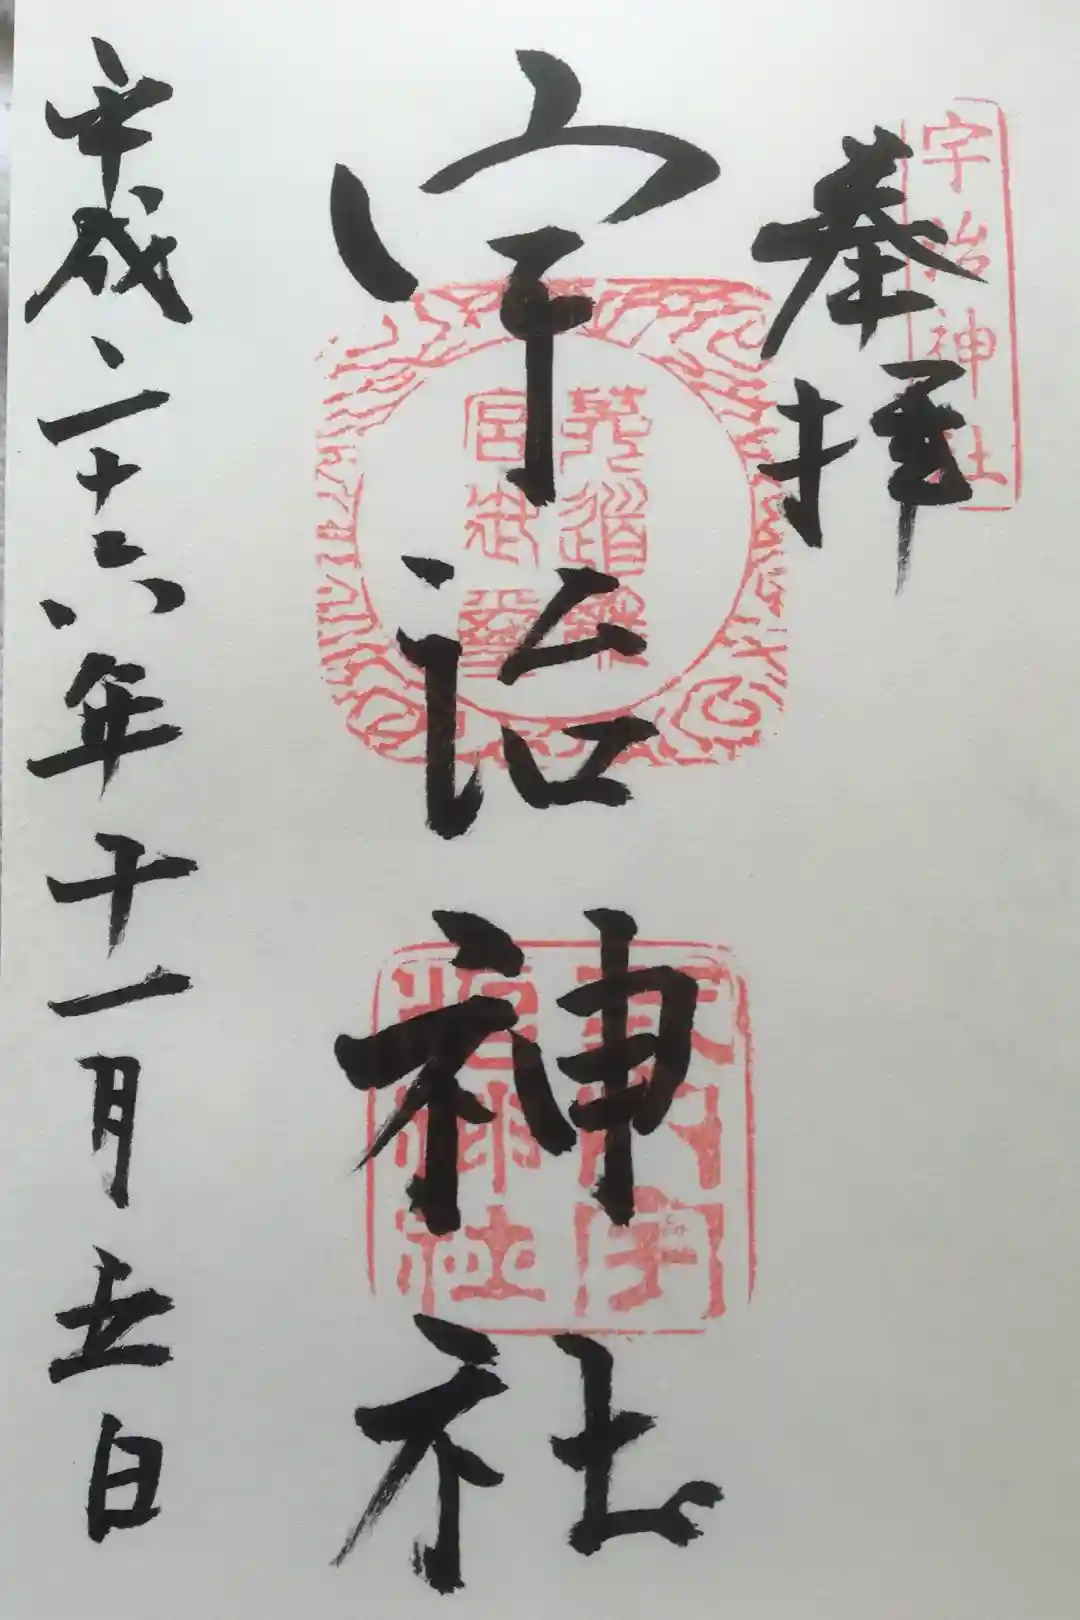 宇治神社
奉拝
宇治神社
平成二十六年十一月五日